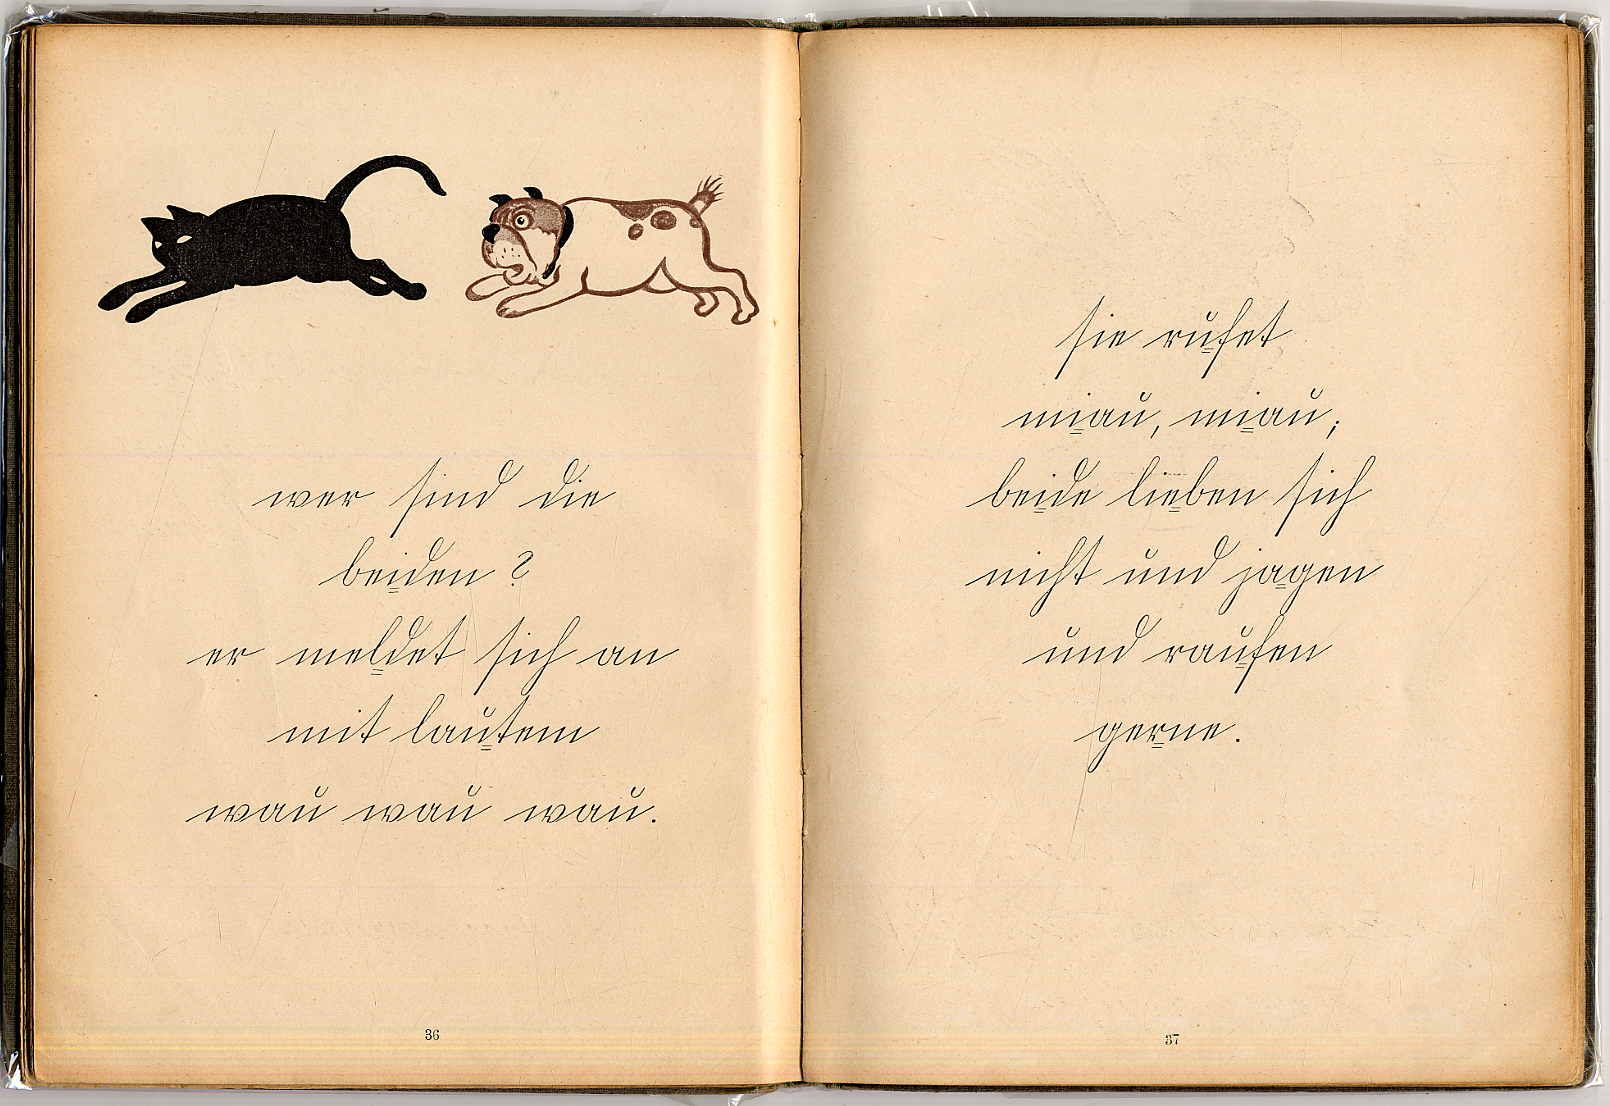 wer sind die
beiden ?
er meldet sich an
mit lautem
wau wau wau.
36
sie rufet
miau, miau;
beide lieben sich
nicht und jagen
und raufen
gerne.
37